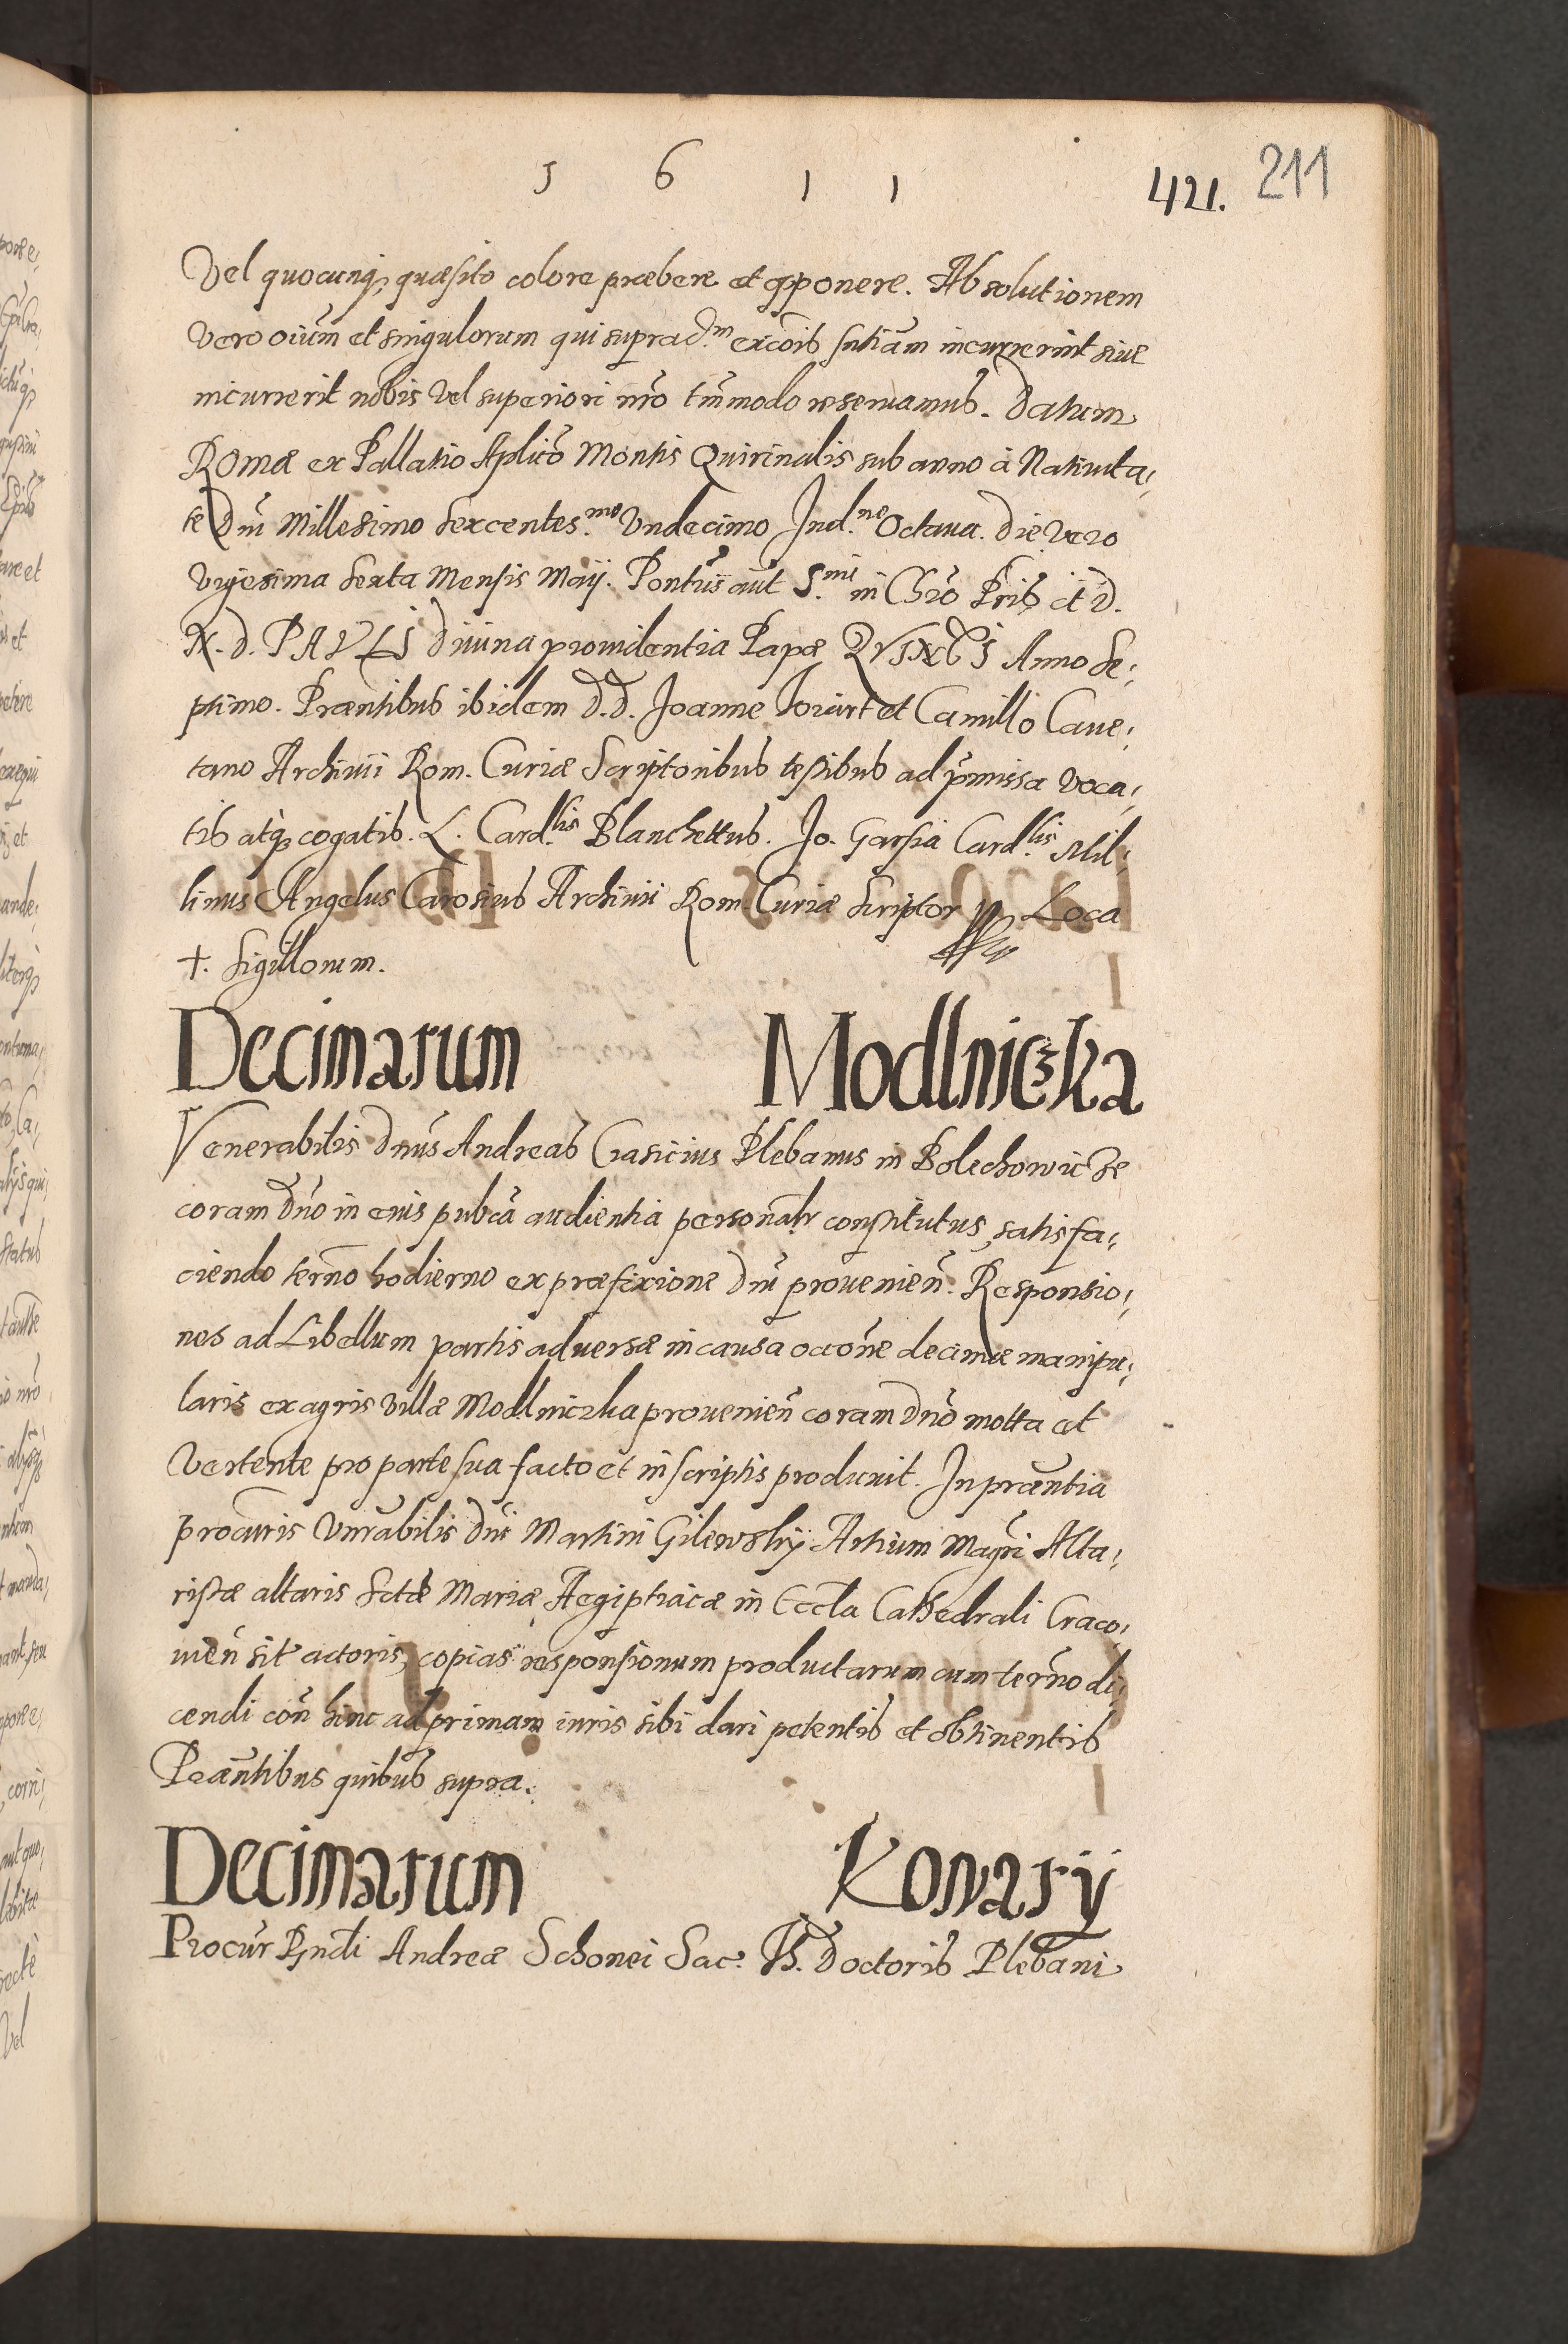 1 6 1 1
421. 211
Vel quocunq; quæsito colore præbere et apponere. Absolutionem
vero oium̃ et singulorum qui suprad.m excõis sntiam̃ incurrerint siue
incurrerit nobis vel superiori nr̃o tm̃modo reseruamus. Datum
Romæ ex Pallatio Aplico Montis Quirinalis sub anno à Natiuita,
te Dni Millesimo Sexcentes.mo Vndecimo Ind.ne Octaua. die vero
vigesima Sexta Mensis Maij. Pontus aũt S.mi in Chro Pris et D.
N. D. PAVLI diuina prouidentia Papæ QVINTI Anno Se,
ptimo. Præntibus ibidem D.D. Joanne et Camillo Caue,
tano Archiuii Rom. Curiæ Scriptoribus testibus ad pr̃missa voca,
tis atq; rogatis. L. Card.lis Blanchettus. Jo. Garsia Card.lis Mil,
linus Angelus Carosius Archiuii Rom. Curiæ Scriptor Loca
+. Sigillorum.
Decimarum Modlniczka
Venerabilis Dnus Andreas Crasicius Plebanus in Bolechowicze
coram Dno in eius pubca audientia personalr constitutus, satisfa,
ciendo termo hodierno ex præfixione Dni prouenien. Responsio,
nes ad Libellum partis aduersæ in causa occone decimæ manipu,
laris ex agris villæ Modlniczka prouenien coram Dno motta et
vertente pro parte sua facto et in scriptis produxit. In præntia
procuris Vnrabilis Dni Martini Gilewskij Artium Magri Alta,
ristæ altaris Sctæ Mariæ Aegiptiacæ in Eccla Cathedrali Craco,
uien sit actoris, copias responsionum productarum cum termo di,
cendi con hinc ad primam iuris sibi dari petentis et obtinentis
Præntibus quibus supra.
Decimarum Konary
Procur Rndi Andreæ Schonei Sac. Th. Doctoris Plebani